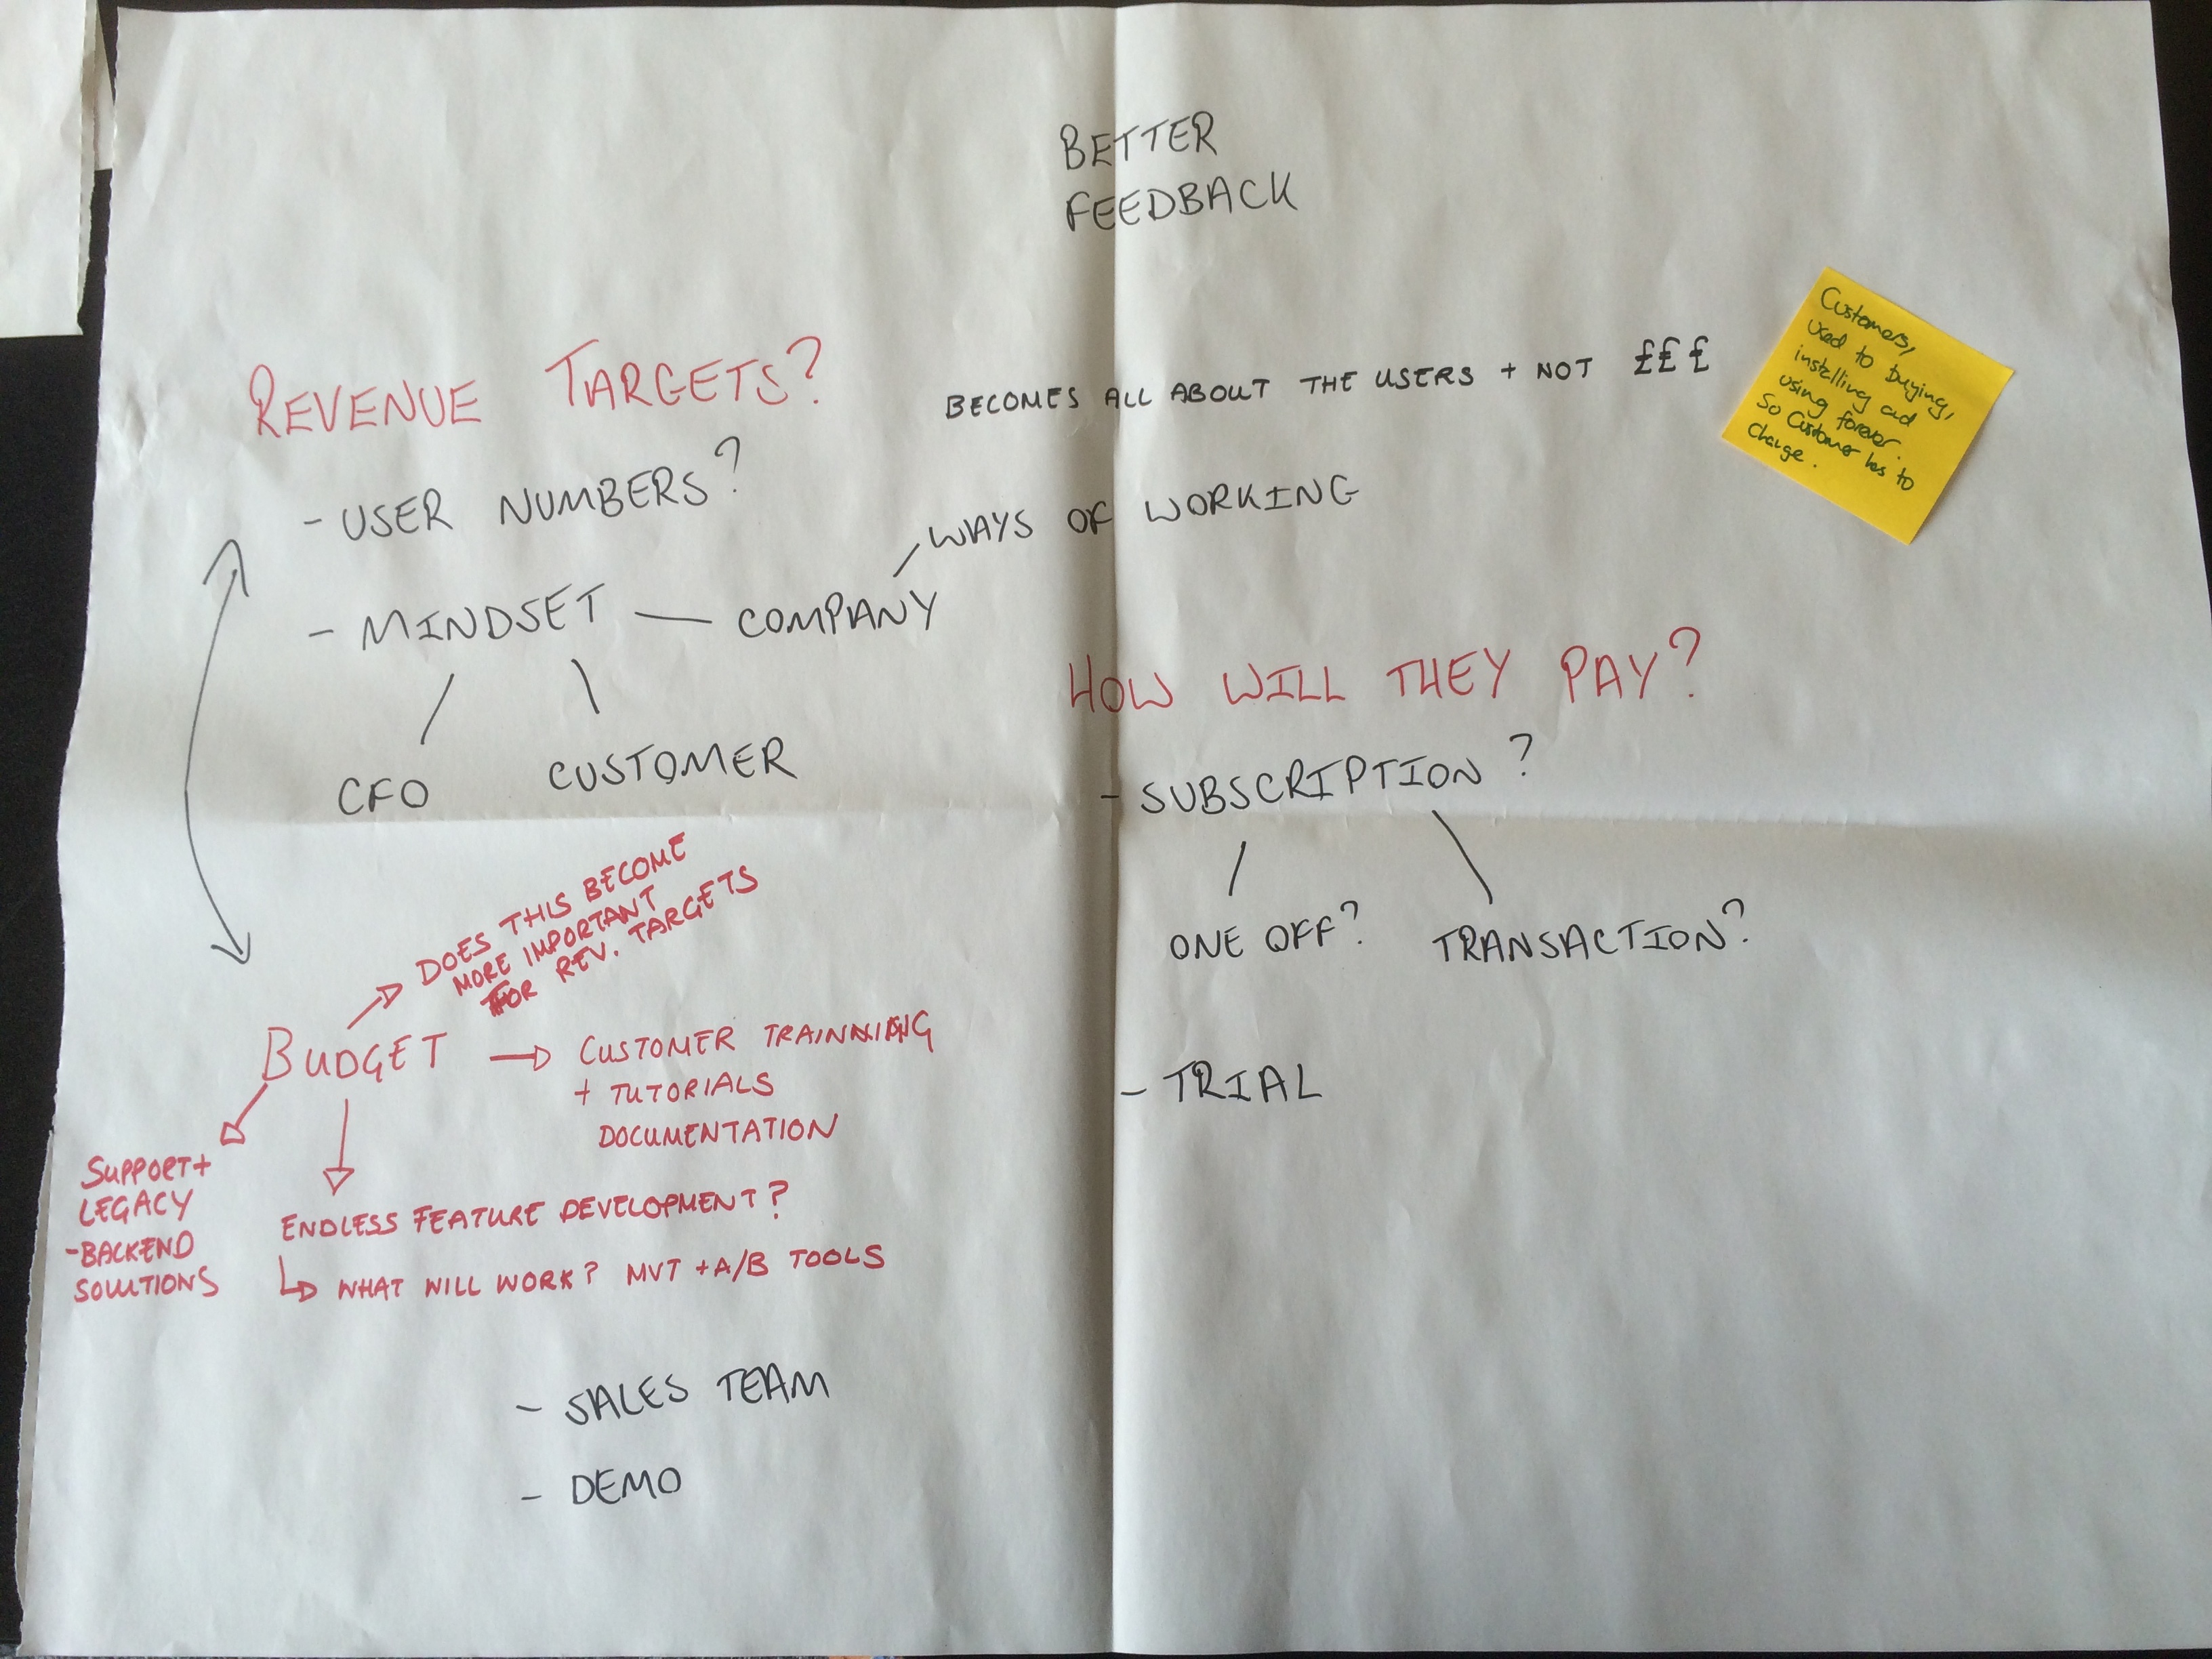 BETTER
FEEDBACK
REVENUE TARGETS?
BECOMES ALL ABOUT THE USERS + NOT £££
Customers,
used to buying,
instelling and
using forever.
So Customer has to
change.
- USER NUMBERS?
WAYS OF WORKING
- MINDSET — COMPANY
CFO
CUSTOMER
HOW WILL THEY PAY?
- SUBSCRIPTION?
ONE OFF?
TRANSACTION?
- TRIAL
DOES THIS BECOME
MORE IMPORTANT
FOR REV. TARGETS
BUDGET → CUSTOMER TRAINNING
+ TUTORIALS
DOCUMENTATION
SUPPORT +
LEGACY
- BACKEND
SOLUTIONS
ENDLESS FEATURE DEVELOPMENT?
↳ WHAT WILL WORK? MVT + A/B TOOLS
- SALES TEAM
- DEMO